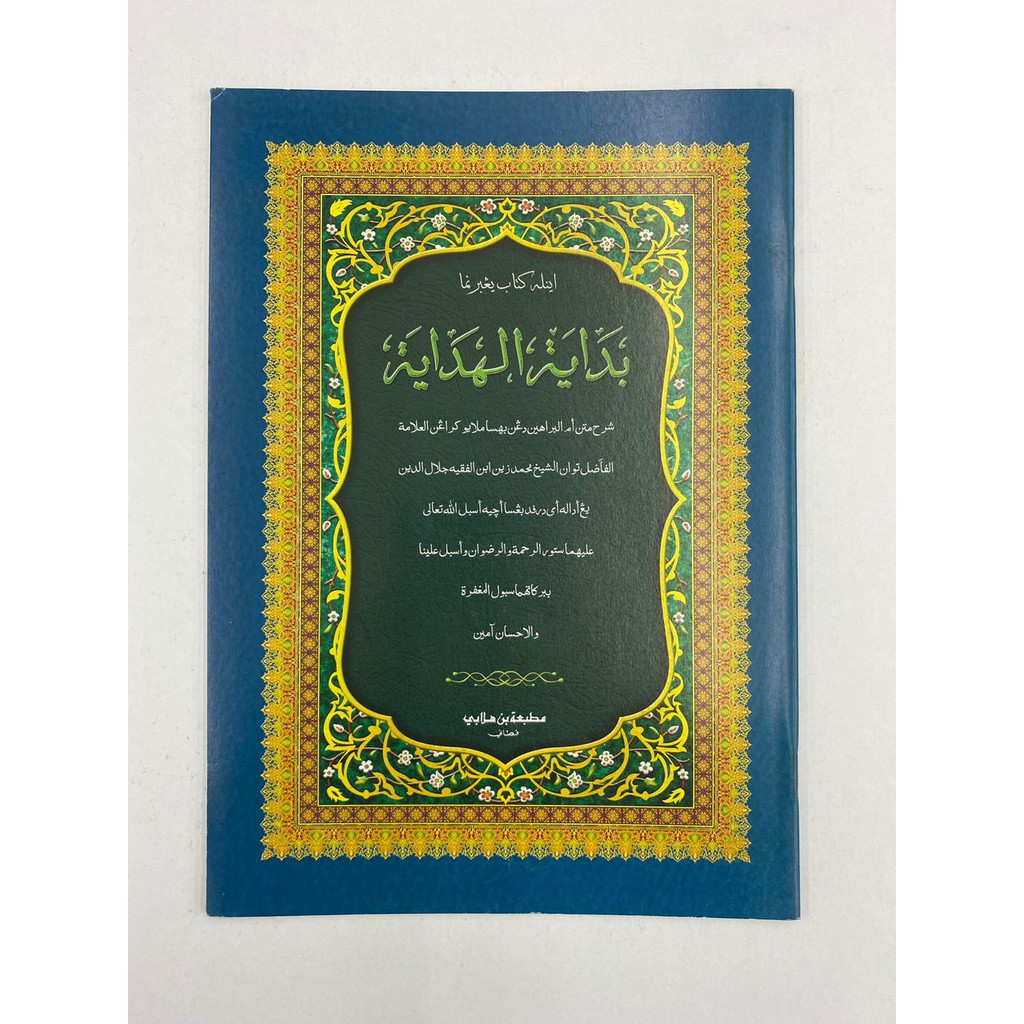 اينله كتاب يڠبرنما
بداية الهداية
شرح متن أم البراهين دڠن بهسا ملايو كراڠن العلامة
الفاضل توان الشيخ محمد زين ابن الفقيه جلال الدين
يڠ أداله أي درفد بڠسا أچيه أسبل الله تعالى
عليهما ستور الرحمة والرضوان وأسبل علينا
ببركاتهما سبول المغفرة
والاحسان آمين
مطبعة بن هلابي
فطاني